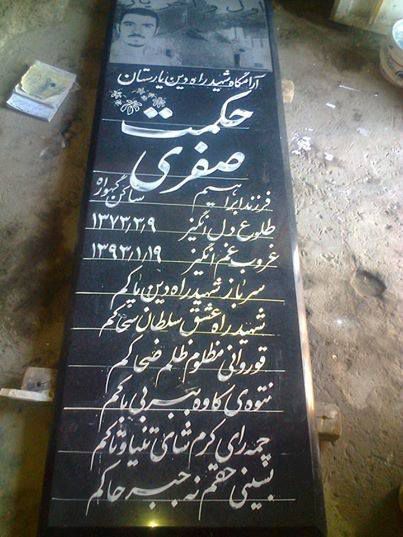 آرامگاه شهید راه دین یارستان
حکمت
صفری
فرزند ابراهیم ساکن گهواره
طلوع دل انگیز ۱۳۷۳/۳/۹
غروب غم انگیز ۱۳۹۳/۱/۱۹
سرباز شهید راه دین پاکم
شهید راه عشق سلطان سحاکم
قوروانی مظلوم ظلم ضحاکم
نتوه ی کاوه ببر بی باکم
چمه رای کرم شای تنیا و تاکم
بسینی حقم نه جبر حاکم